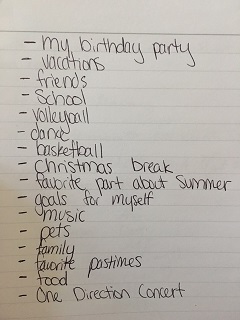 - my birthday party
- vacations
- friends
- School
- volleyball
- dance
- basketball
- Christmas break
- favorite part about Summer
- goals for myself
- music
- pets
- family
- favorite pastimes
- food
- One Direction Concert